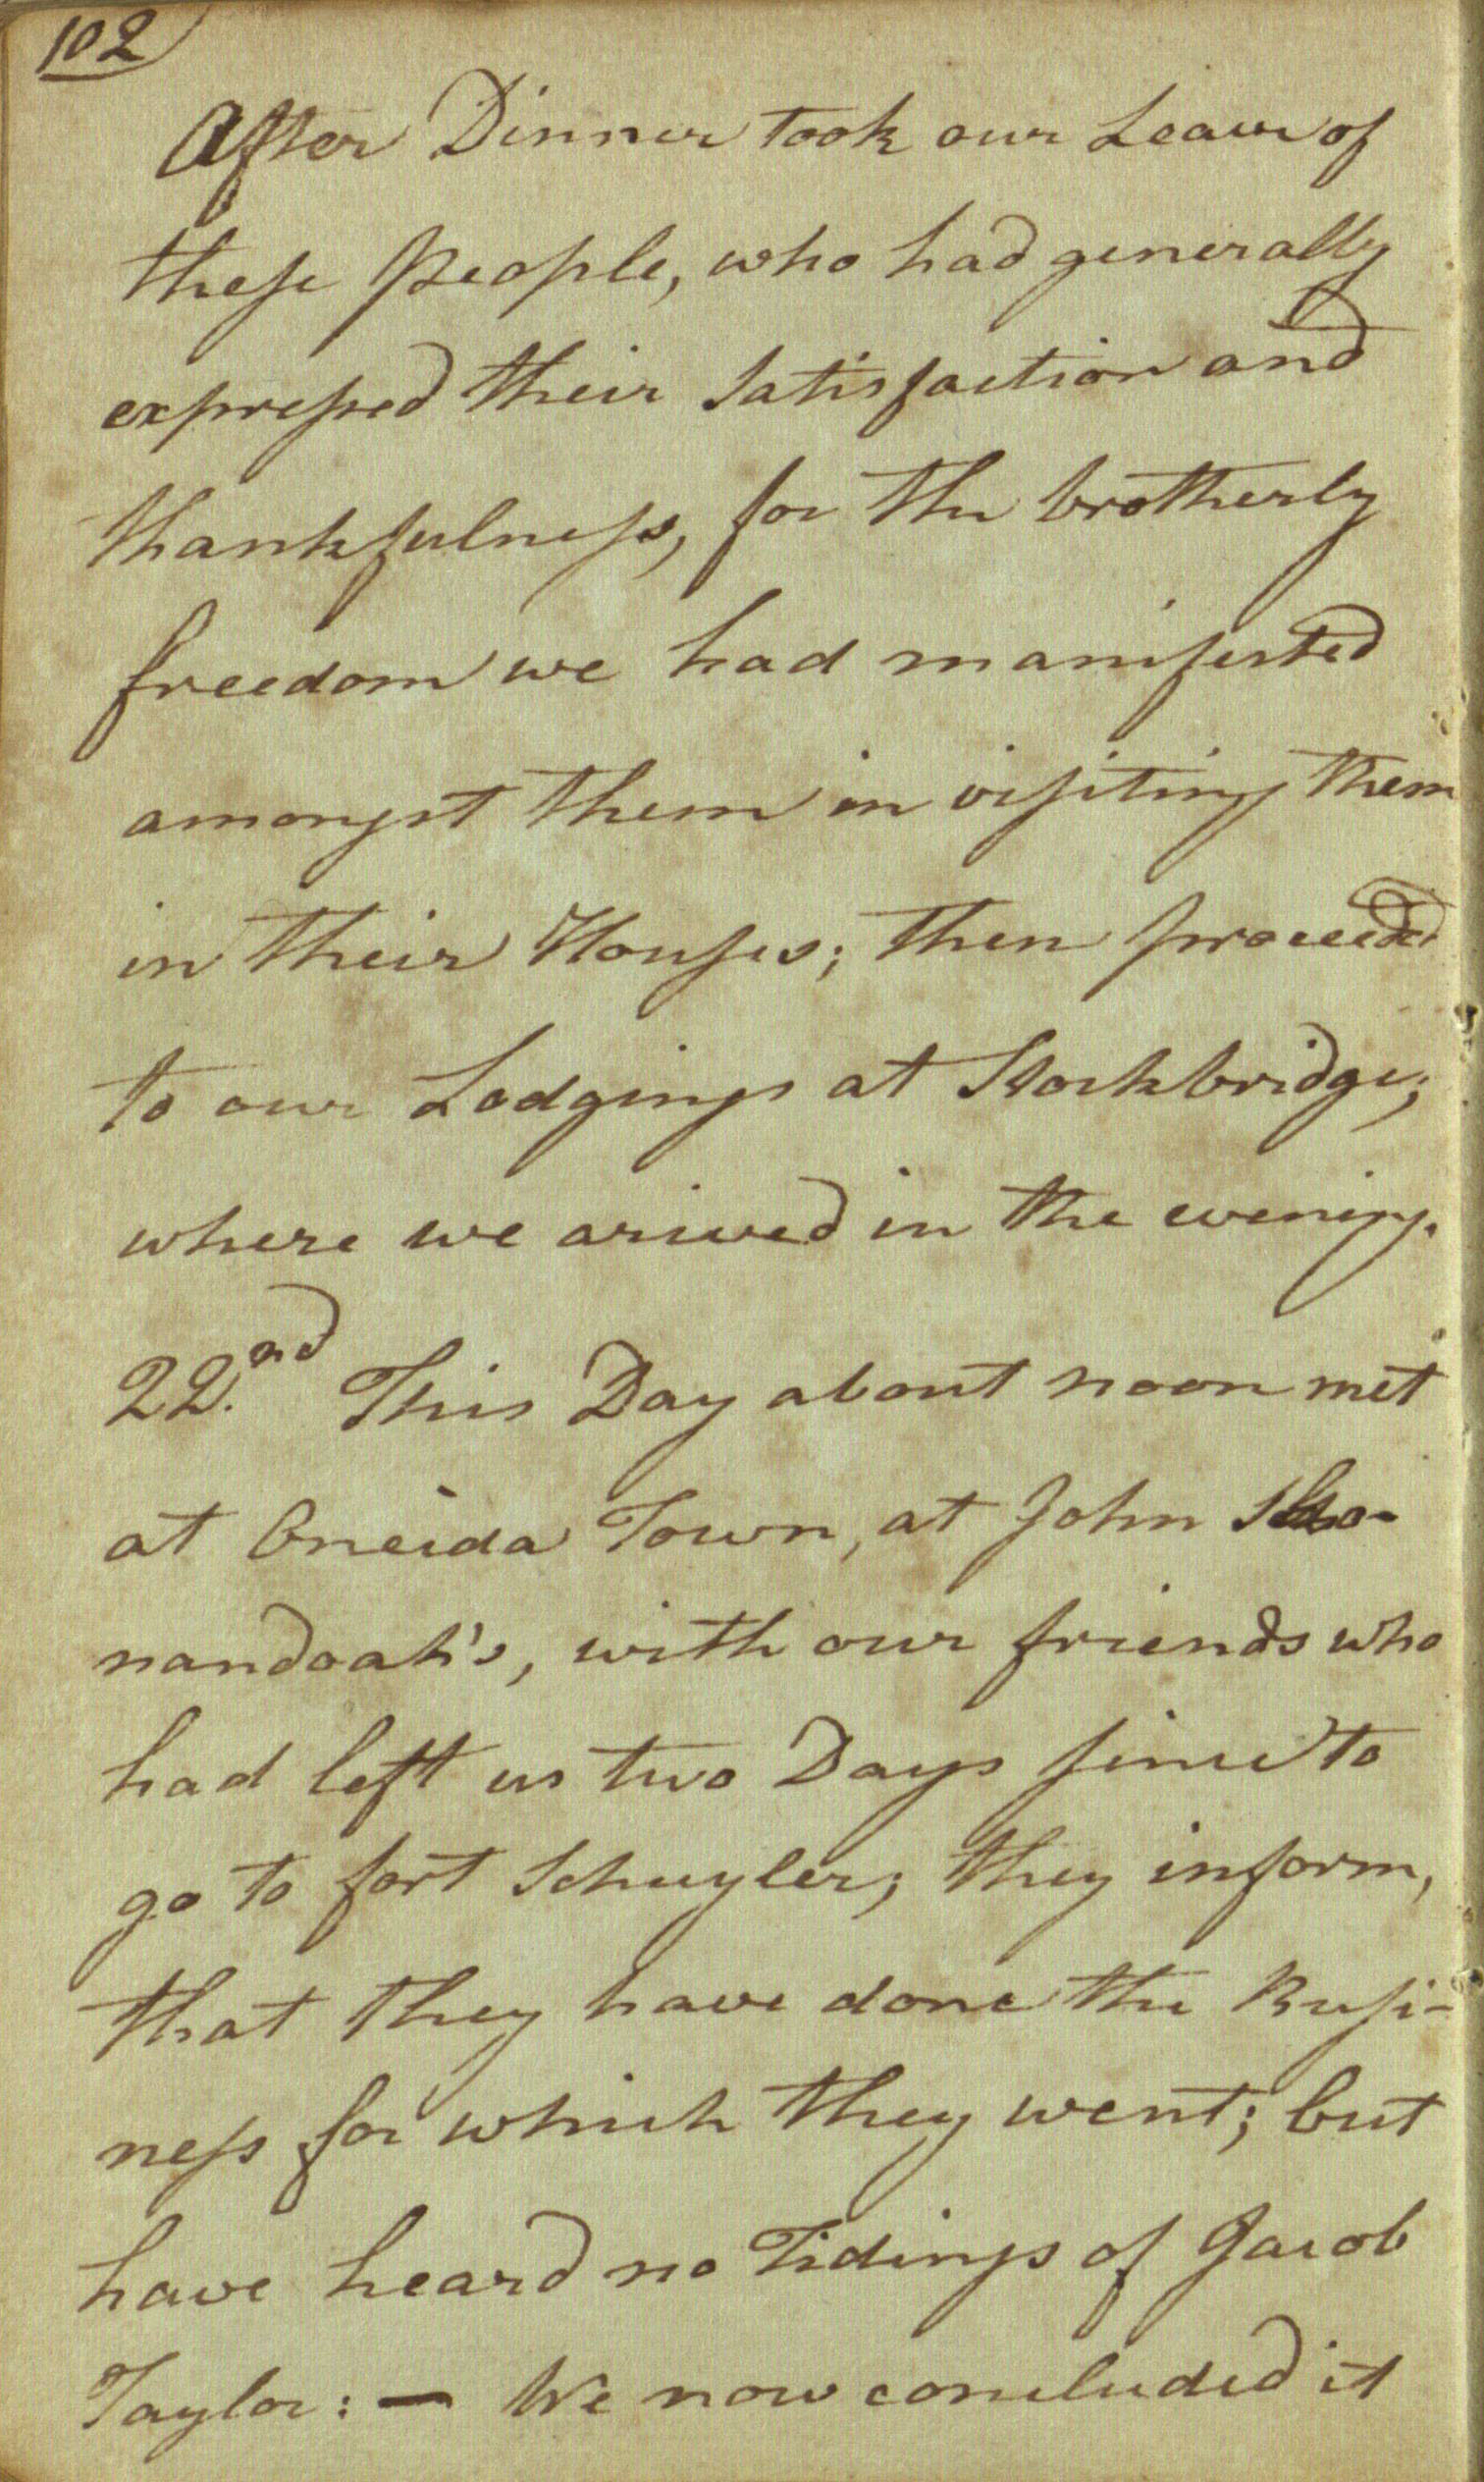 102
After Dinner took our Leave of
these People, who had generally
expressed their Satisfaction and
thankfulness, for the brotherly
freedom we had manifested
amongst them in visiting them
in their Houses; then proceeded
to our Lodgings at Stockbridge;
where we arived in the evening.
22.nd This Day about noon met
at Oneida Town, at John Sko-
nandoah's, with our friends who
had left us two Days since to
go to fort Schuyler; they inform,
that they have done the Busi-
ness for which they went; but
have heard no Tidings of Jacob
Taylor: — We now concluded it